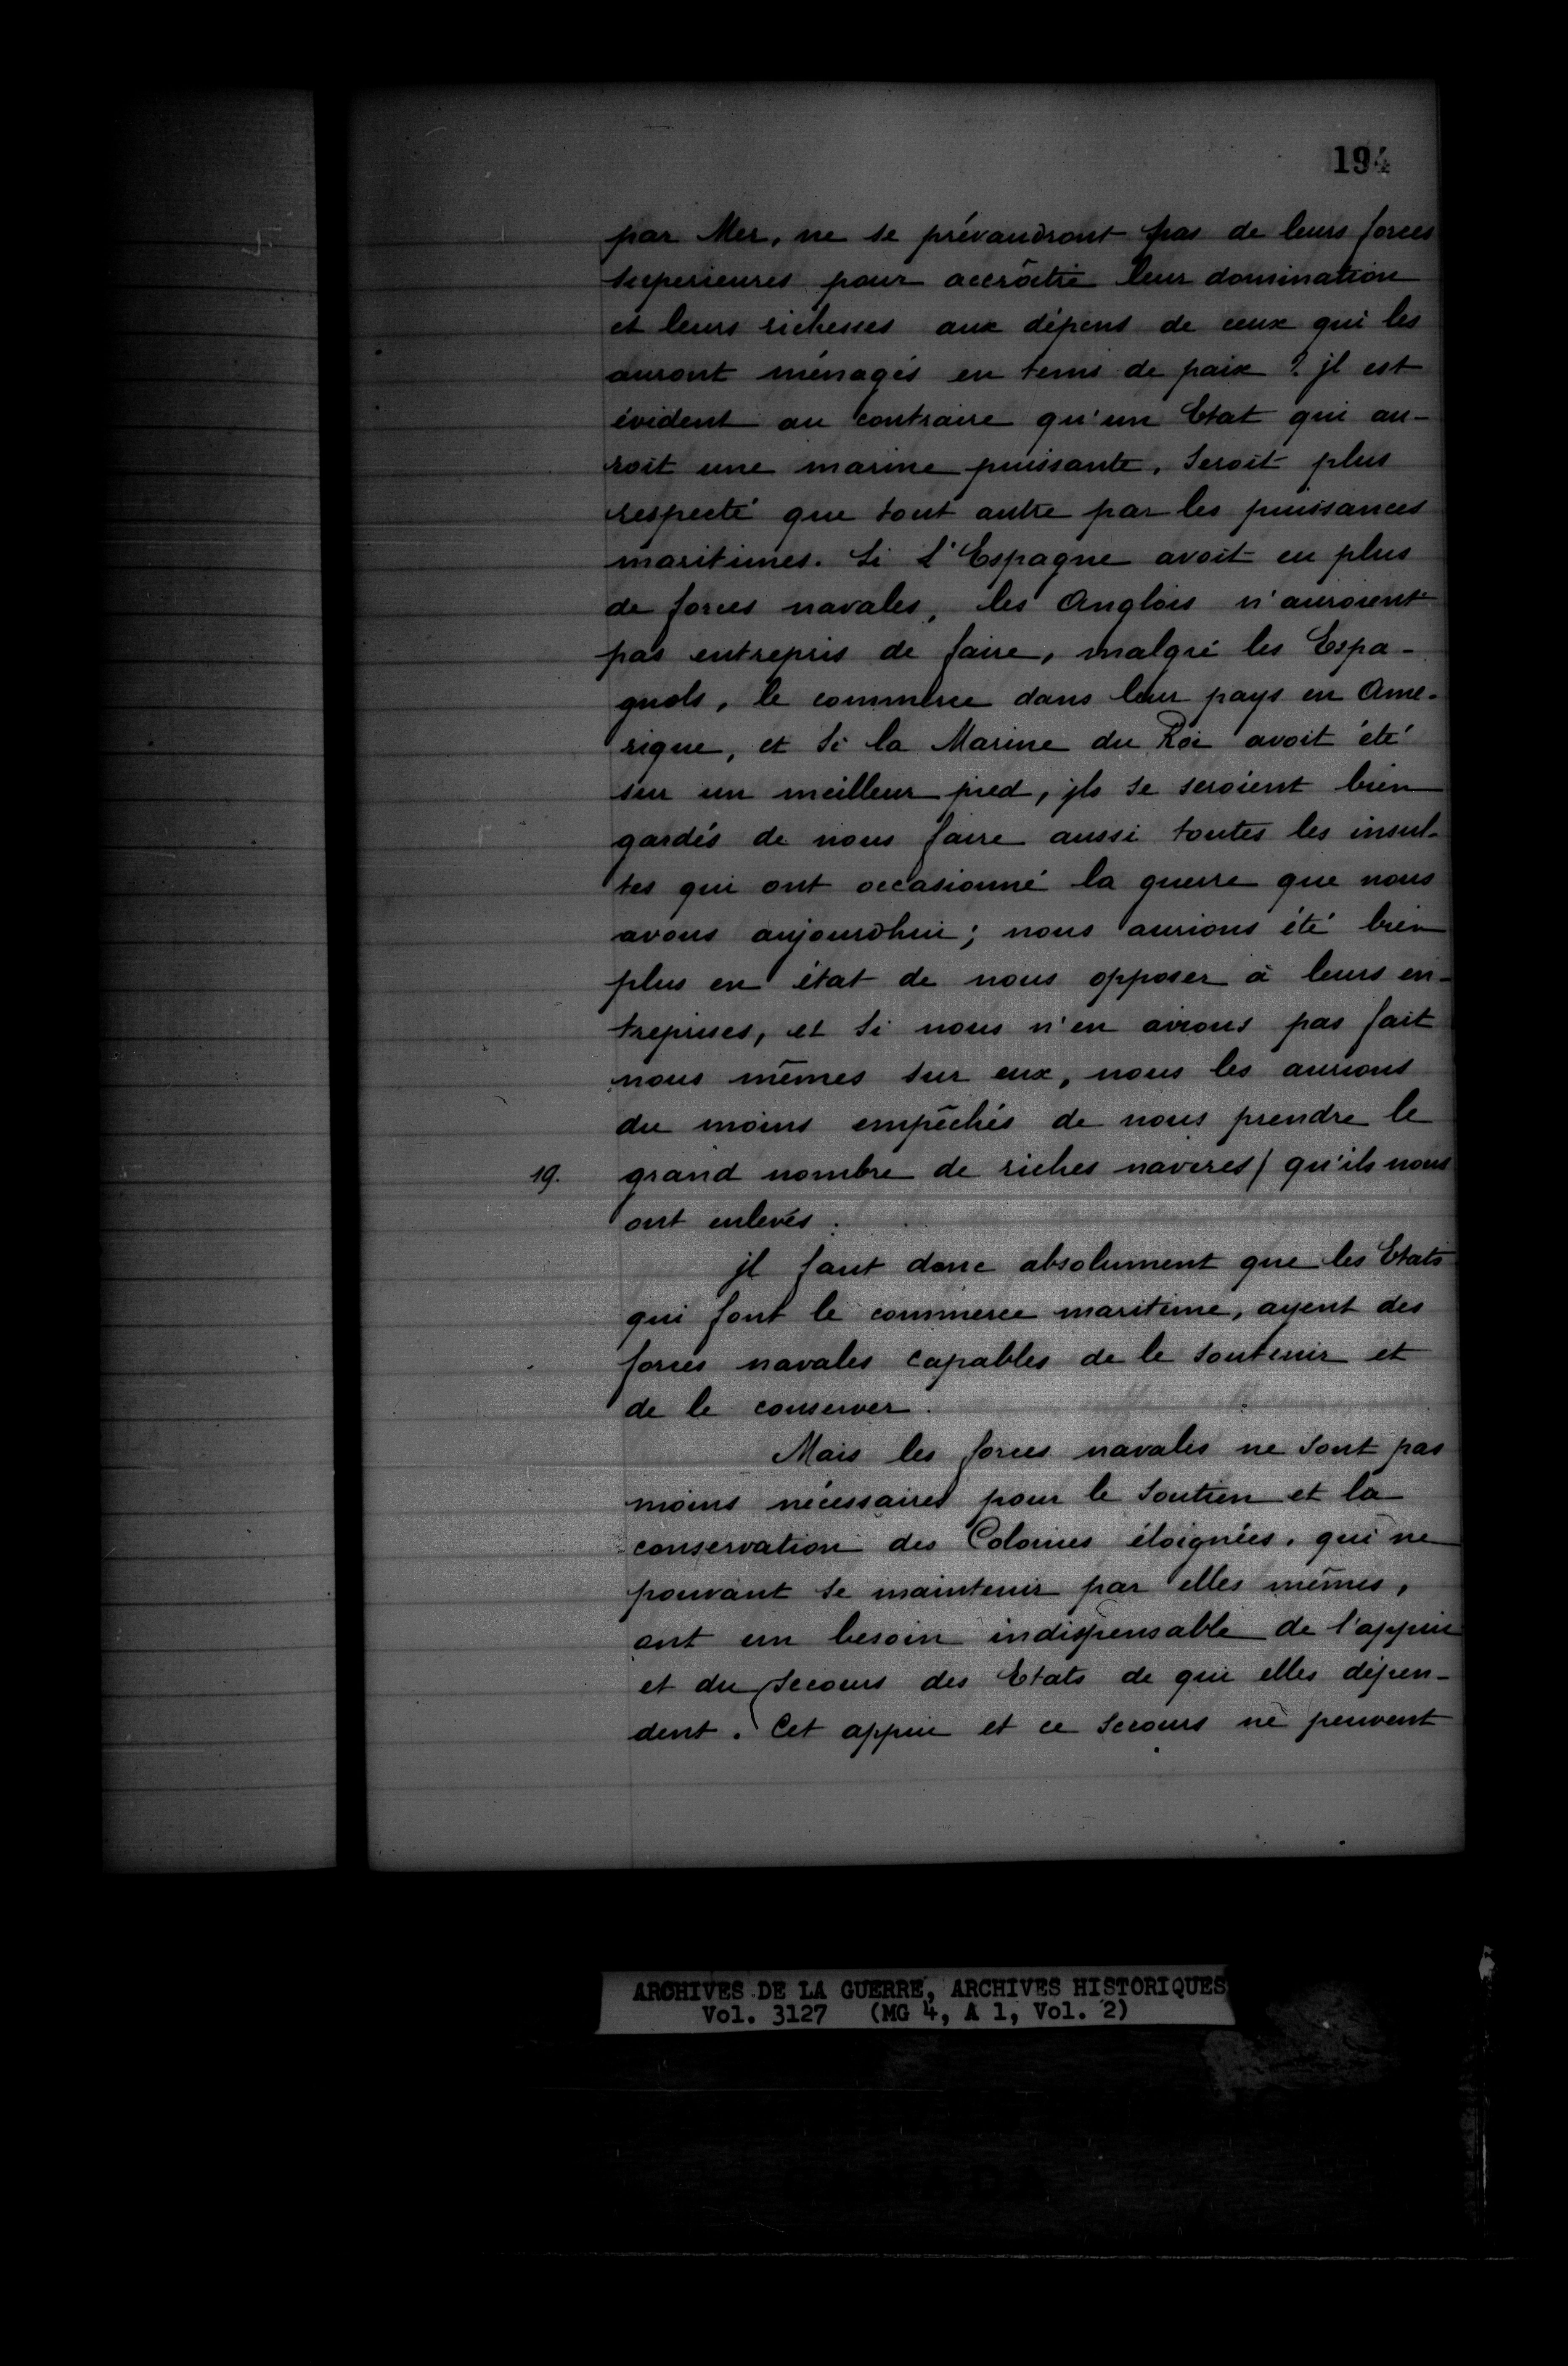 194
par Mer, ne se prévaudront pas de leurs forces
superieures pour accroître leur domination
et leurs richesses aux dépens de ceux qui les
auront ménagés en tems de paix ? jl est
évident au contraire qu'un Etat qui au-
roit une marine puissante, seroit plus
respecté que tout autre par les puissances
maritimes. Si l'Espagne avoit eu plus
de forces navales, les Anglois n'auroient
pas entrepris de faire, malgré les Espa-
gnols, le commerce dans leur pays en Ame-
rique, et si la Marine du Roi avoit été
sur un meilleur pied, jls se seroient bien
gardés de nous faire aussi toutes les insul-
tes qui ont occasionné la guerre que nous
avons aujourdhui ; nous aurions été bien
plus en état de nous opposer à leurs en-
treprises, et si nous n'en avions pas fait
nous mêmes sur eux, nous les aurions
du moins empêchés de nous prendre le
19. grand nombre de riches navires / qu'ils nous
ont enlevés.
jl faut donc absolument que les Etats
qui font le commerce maritime, ayent des
forces navales capables de le soutenir et
de le conserver.
Mais les forces navales ne sont pas
moins nécessaires pour le soutien et la
conservation des Colonies éloignées, qui ne
pouvant se maintenir par elles mêmes,
ont un besoin indispensable de l'appui
et du secours des Etats de qui elles dépen-
dent. Cet appui et ce secours ne peuvent
ARCHIVES DE LA GUERRE, ARCHIVES HISTORIQUES
Vol. 3127 (MG 4, A 1, Vol. 2)